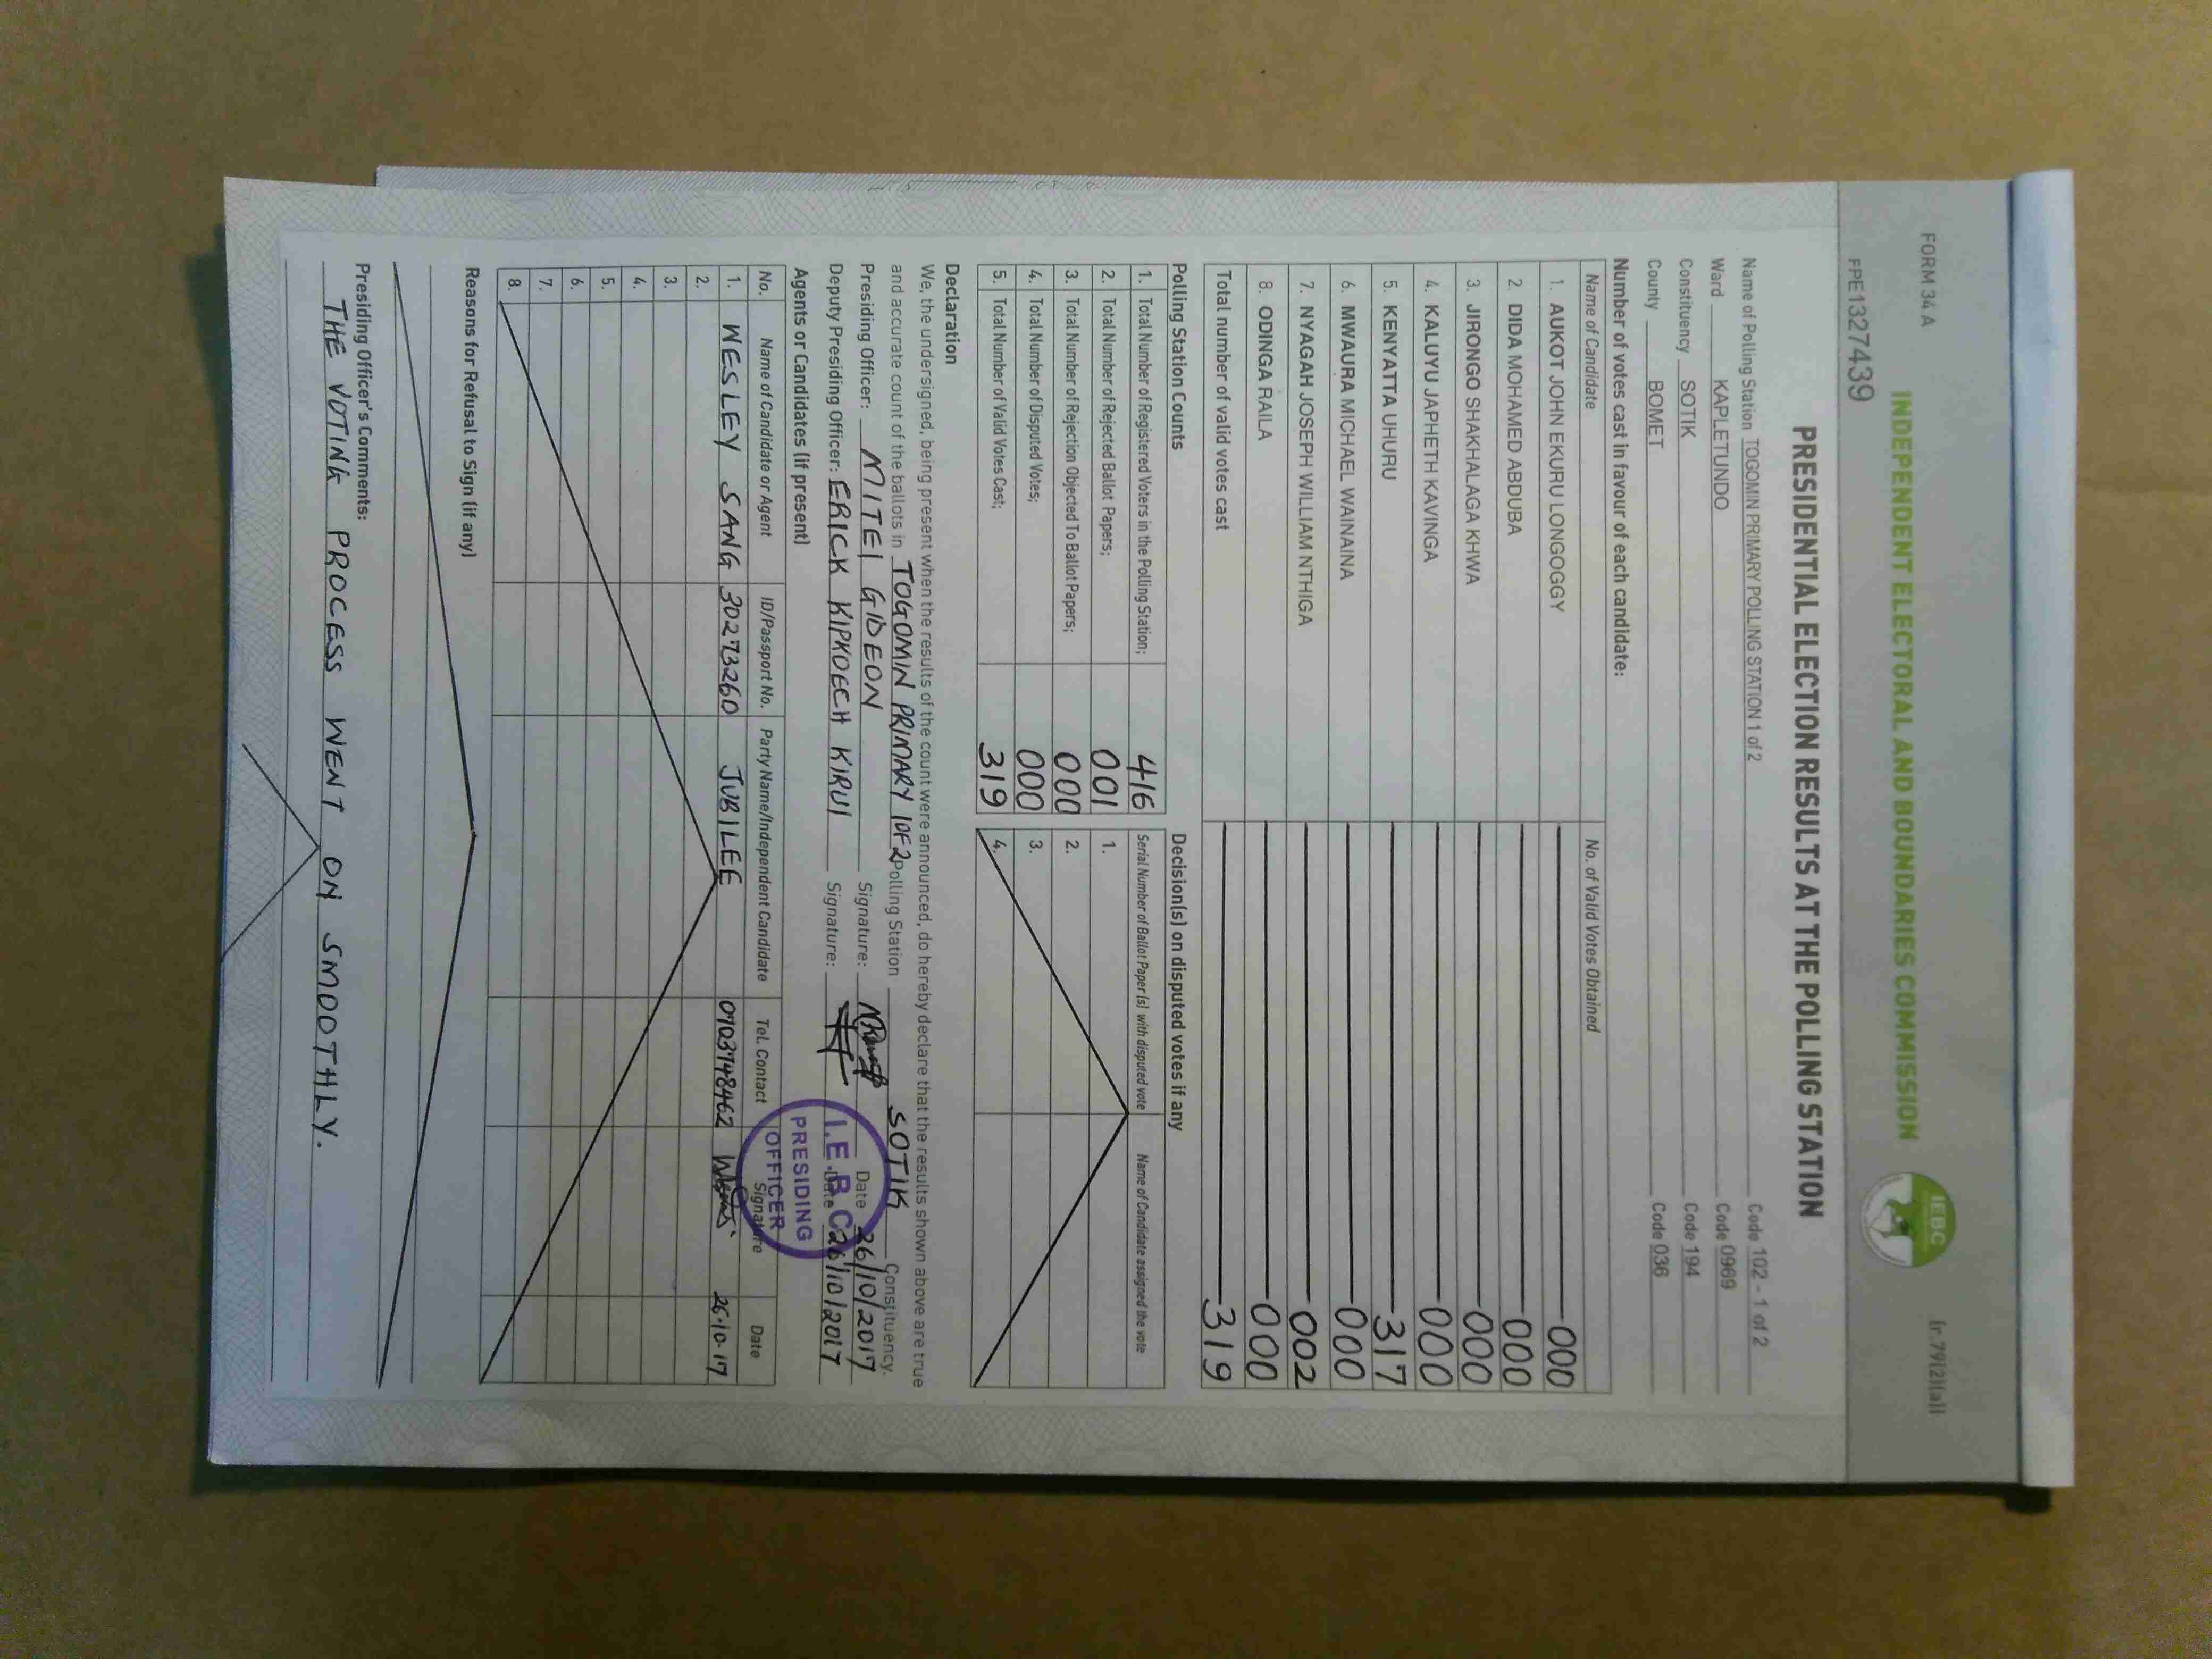 FORM 34 A
[r.79(2)(a)]
INDEPENDENT ELECTORAL AND BOUNDARIES COMMISSION
IEBC
FPE1327439
PRESIDENTIAL ELECTION RESULTS AT THE POLLING STATION
Name of Polling Station TOGOMIN PRIMARY POLLING STATION 1 of 2 Code 102 - 1 of 2
Ward KAPLETUNDO Code 0969
Constituency SOTIK Code 194
County BOMET Code 036
Number of votes cast in favour of each candidate:
Name of Candidate No. of Valid Votes Obtained
1. AUKOT JOHN EKURU LONGOGGY 000
2. DIDA MOHAMED ABDUBA 000
3. JIRONGO SHAKHALAGA KHWA 000
4. KALUYU JAPHETH KAVINGA 000
5. KENYATTA UHURU 317
6. MWAURA MICHAEL WAINAINA 000
7. NYAGAH JOSEPH WILLIAM NTHIGA 002
8. ODINGA RAILA 000
Total number of valid votes cast 319
Polling Station Counts Decision(s) on disputed votes if any
1. Total Number of Registered Voters in the Polling Station; 416 Serial Number of Ballot Paper (s) with disputed vote Name of Candidate assigned the vote
2. Total Number of Rejected Ballot Papers; 001 1.
3. Total Number of Rejection Objected To Ballot Papers; 000 2.
4. Total Number of Disputed Votes; 000 3.
5. Total Number of Valid Votes Cast; 319 4.
Declaration
We, the undersigned, being present when the results of the count were announced, do hereby declare that the results shown above are true
and accurate count of the ballots in TOGOMIN PRIMARY 1 OF 2 Polling Station SOTIK Constituency.
Presiding Officer: MITEI GIDEON Signature: Date 26/10/2017
Deputy Presiding Officer: ERICK KIPKOECH KIRUI Signature: Date 26/10/2017
I.E.B.C
PRESIDING
OFFICER
Agents or Candidates (if present)
No. Name of Candidate or Agent ID/Passport No. Party Name/Independent Candidate Tel. Contact Signature Date
1. WESLEY SANG 30273260 JUBILEE 0703748462 26-10-17
2.
3.
4.
5.
6.
7.
8.
Reasons for Refusal to Sign (if any)
Presiding Officer's Comments:
THE VOTING PROCESS WENT ON SMOOTHLY.